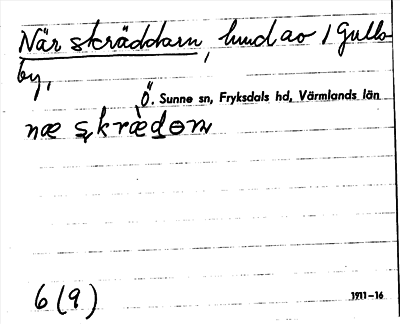 När skräddarn, hmd av 1 Gulls-
by,
Ö. Sunne sn, Fryksdals hd, Värmlands län
næ skrædɵn
6 (9)
1911–16